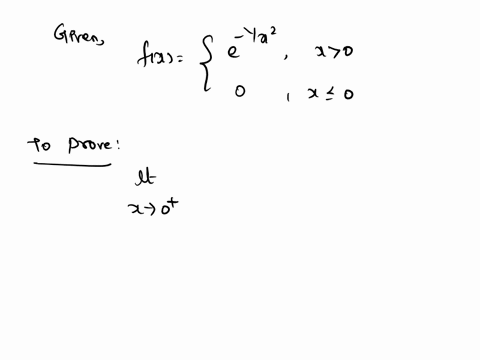 Given,
f(x) = { e^{-1/x²} , x>0
0 , x ≤ 0
To prove:
lt
x→0⁺